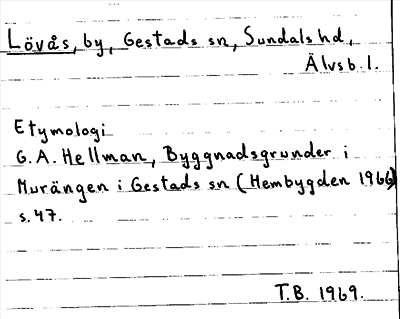 Lövås, by, Gestads sn, Sundals hd,
Älvsb. l.
Etymologi
G. A. Hellman, Byggnadsgrunder i
Murängen i Gestads sn (Hembygden 1966)
s. 47.
T.B. 1969.